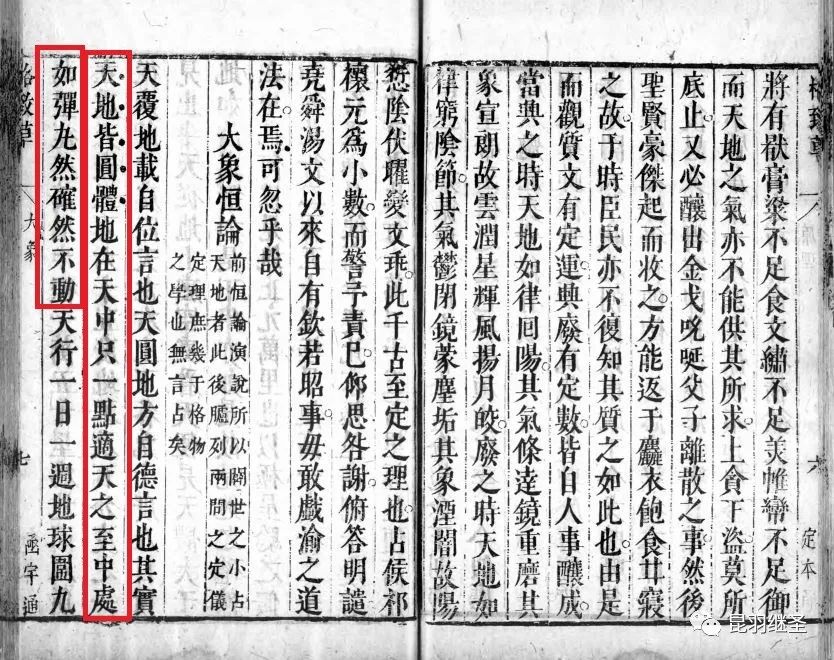 格致草
六
定本
將有猒膏粱不足食文繡不足美帷巒不足御
而天地之氣亦不能供其所求上貪下盜莫所
底止又必釀出金戈咣唌父子離散之事然後
聖賢豪傑起而收之方能返于麤衣飽食甘寢
之故于時臣民亦不復知其質之如此也由是
而觀質文有定運興廢有定數皆自人事釀成
當興之時天地如律回陽其氣條達鏡重磨其
象宣朗故雲潤星輝風揚月皎廢之時天地如
律窮陰節其氣鬱閉鏡蒙塵垢其象湮闇故陽
愆陰伏曜變文乖此千古至定之理也占候祁
櫰元爲小數而警予責已仰思咎謝俯答明譴
堯舜湯文以來自有欽若昭事毋敢戲渝之道
法在焉可忽乎哉
大象恒論
前恒論演說所以闢世之小占
天地者此後臚列兩間之定儀
定理庶幾于格物
之學也無言占矣
天覆地載自位言也天圓地方自德言也其實
天地皆圓體地在天中只一點適天之至中處
如彈丸然確然不動天行一日一週地球圖九
格致草
大象
七
函宇通
昆羽继圣